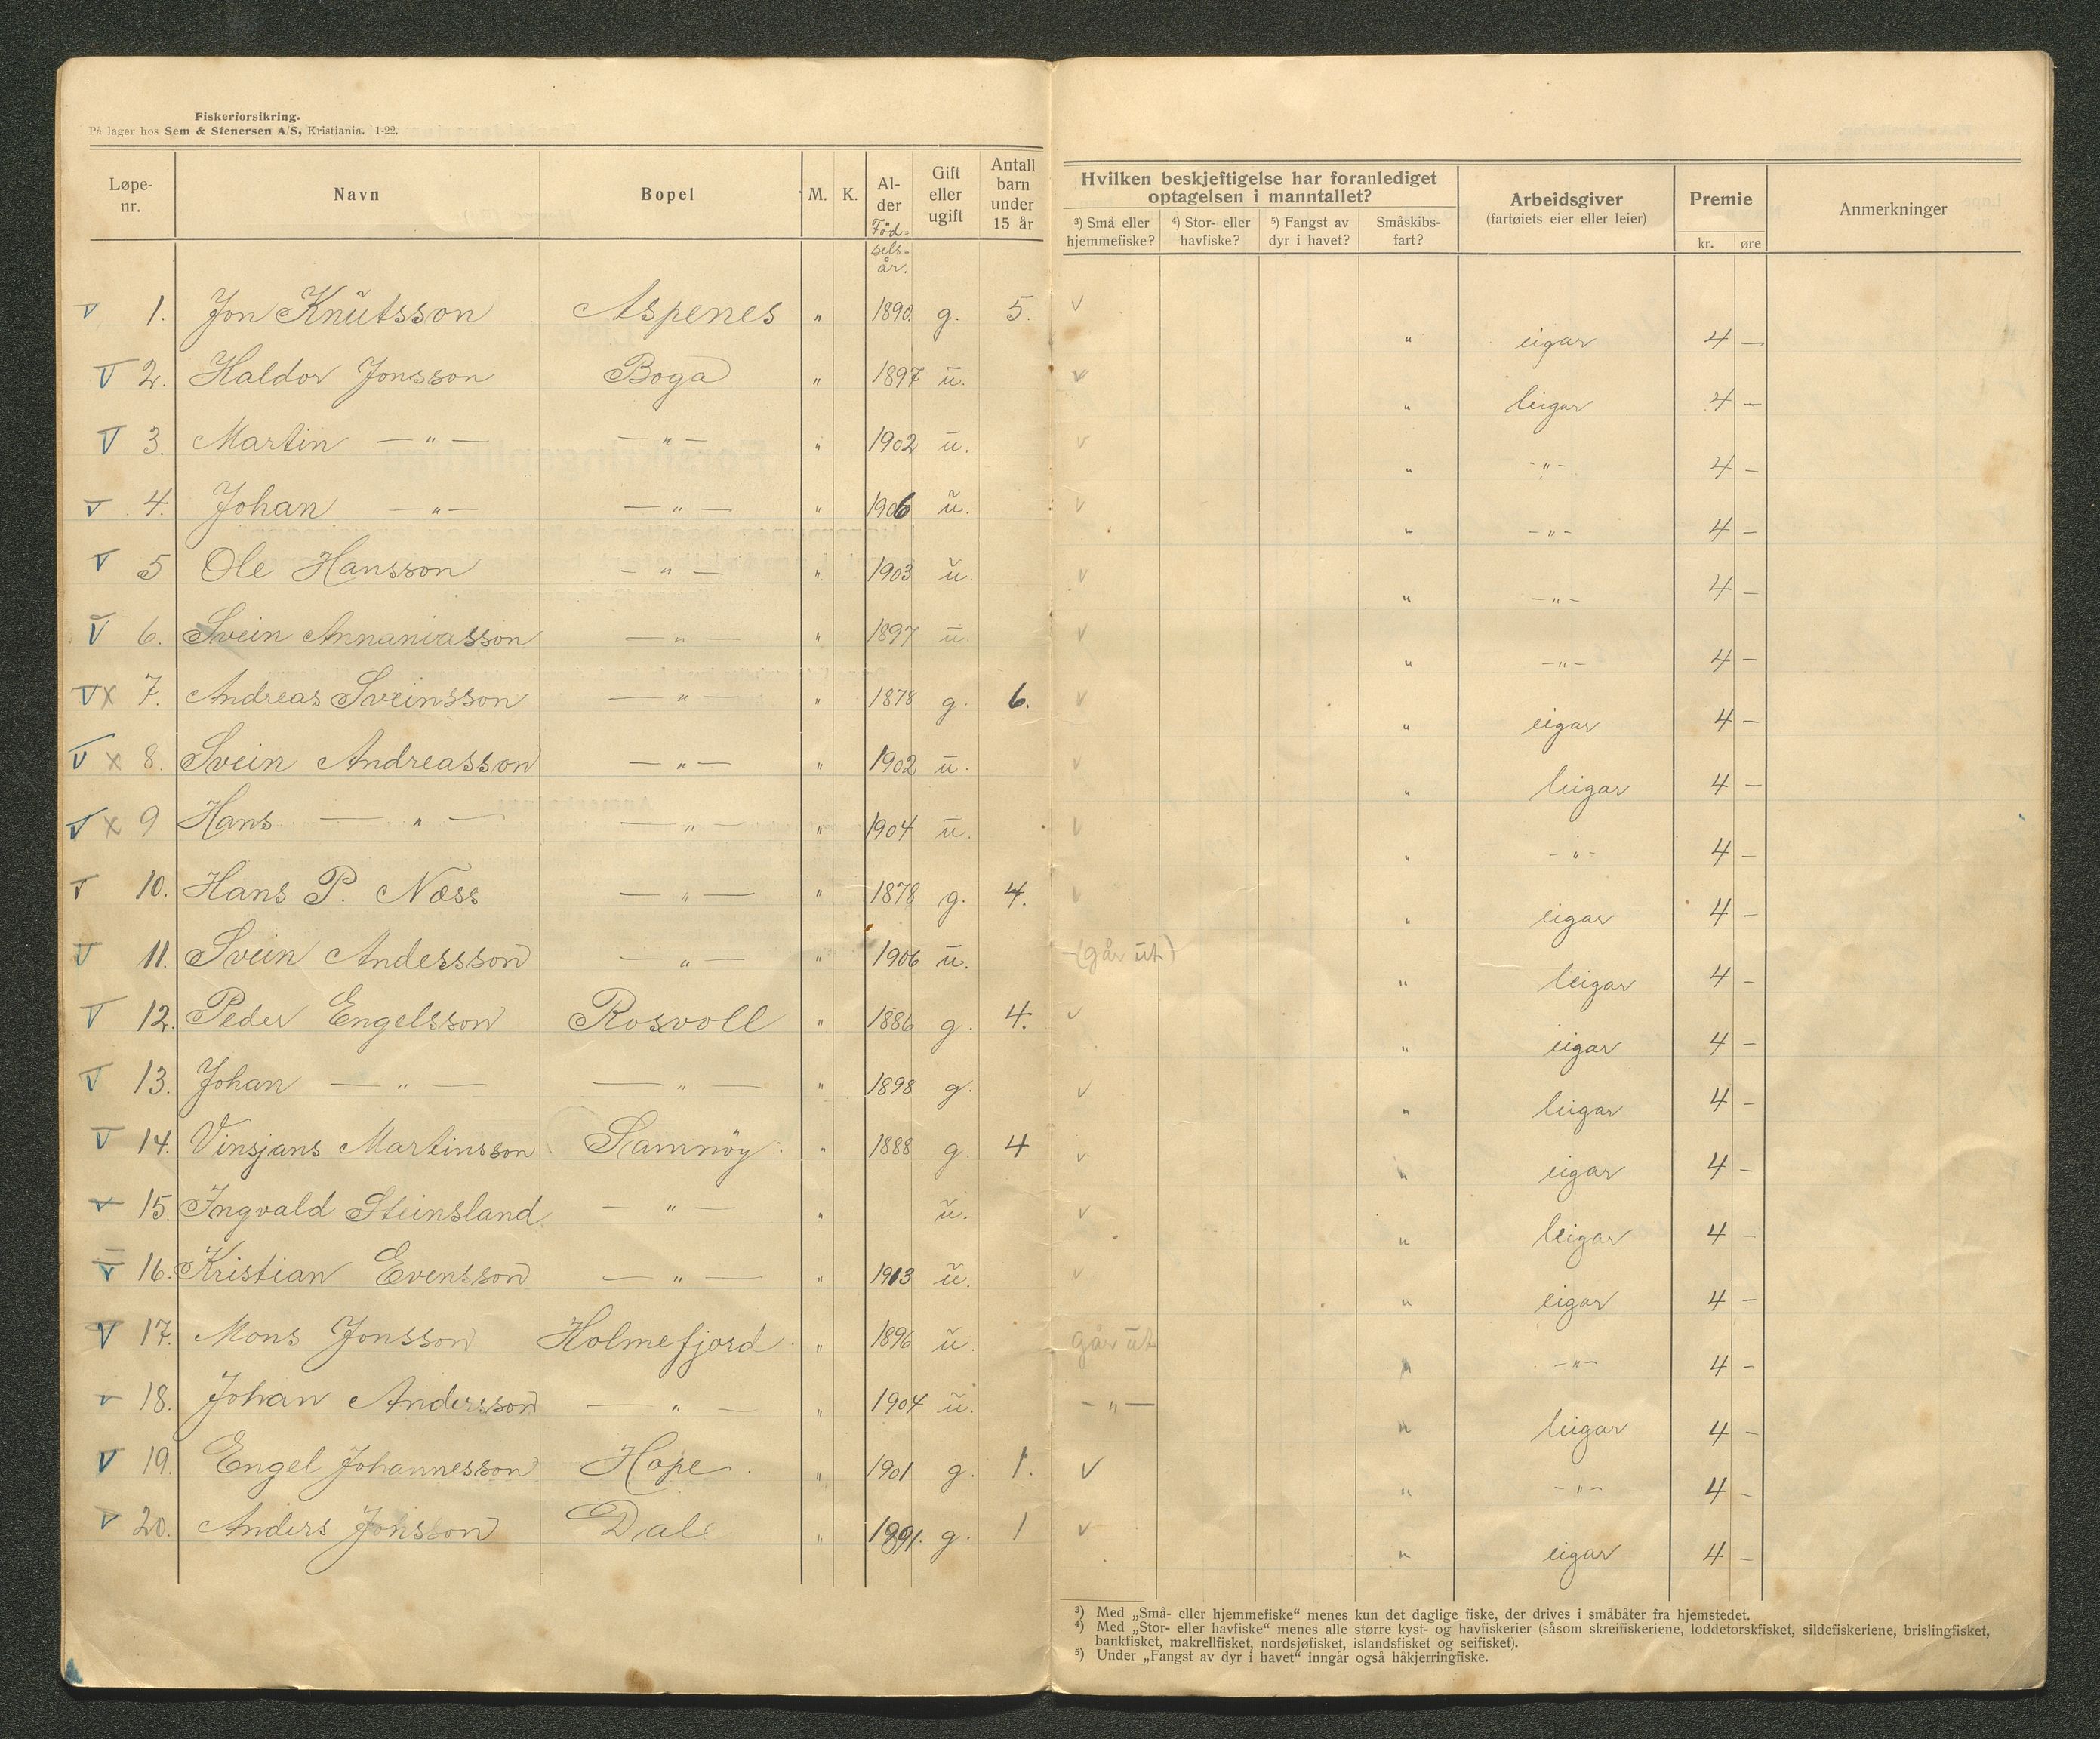 Fiskerforsikring.
På lager hos Sem & Stenersen A/S, Kristiania. 1-22.
Løpe-nr. Navn Bopel M. K. Al-der Föd=sels=år. Gift eller ugift Antall barn under 15 år Hvilken beskjeftigelse har foranlediget optagelsen i manntallet? ³) Små eller hjemmefiske? ⁴) Stor- eller havfiske? ⁵) Fangst av dyr i havet? Småskibs-fart? Arbeidsgiver (fartøiets eier eller leier) Premie kr. øre Anmerkninger
v 1. Jon Knŭtsson Aspenes " 1890. g. 5. v " eigar 4 —
v 2. Haldor Jonsson Boga " 1897 ū. v " leigar 4 —
v 3. Martin — " — — " — " 1902 ū. v " - " - 4 —
v 4. Johan — " — — " — " 1906 ŭ. v " - " - 4 —
v 5 Ole Hansson — " — " 1903 ŭ. v " - " - 4 —
v 6. Svein Annaniasson — " — " 1897 ū. v " - " - 4 —
v x 7. Andreas Sveinsson — " — " 1878 g. 6. v " eigar 4 —
v x 8. Svein Andreasson — " — " 1902 ū. v " leigar 4 —
v x 9 Hans — " — — " — " 1904 ū. v " - " - 4 —
v 10. Hans P. Næss — " — " 1878 g. 4. v " eigar 4 —
v 11. Svein Andersson — " — " 1906 ū. - (går ūt) " leigar 4 —
v 12. Peder Engelsson Rosvoll " 1886 g. 4. v " eigar 4 —
v 13. Johan — " — — " — " 1898 g. v " leigar 4 —
v 14. Vinsjans Martinsson Samnöy " 1888 g. 4 v " eigar 4 —
v 15. Ingvald Steinsland — " — " ŭ. v " leigar 4 —
v 16. Kristian Evensson — " — " 1913 ŭ. v " eigar 4 —
v 17. Mons Jonsson Holmefjord " 1896 ŭ. går ūt " - " - 4 —
v 18. Johan Andersson — " — " 1904 ŭ. - " — " leigar 4 —
v 19. Engel Johannesson Hope. " 1901 g. 1. v " - " - 4 —
v 20. Anders Jonsson Dale " 1891. g. 1 v " eigar 4 —
³) Med „Små- eller hjemmefiske“ menes kun det daglige fiske, der drives i småbåter fra hjemstedet.
⁴) Med „Stor- eller havfiske“ menes alle større kyst- og havfiskerier (såsom skreifiskeriene, loddetorskfisket, sildefiskeriene, brislingfisket,
bankfisket, makrellfisket, nordsjøfisket, islandsfisket og seifisket).
⁵) Under „Fangst av dyr i havet“ inngår også håkjerringfiske.